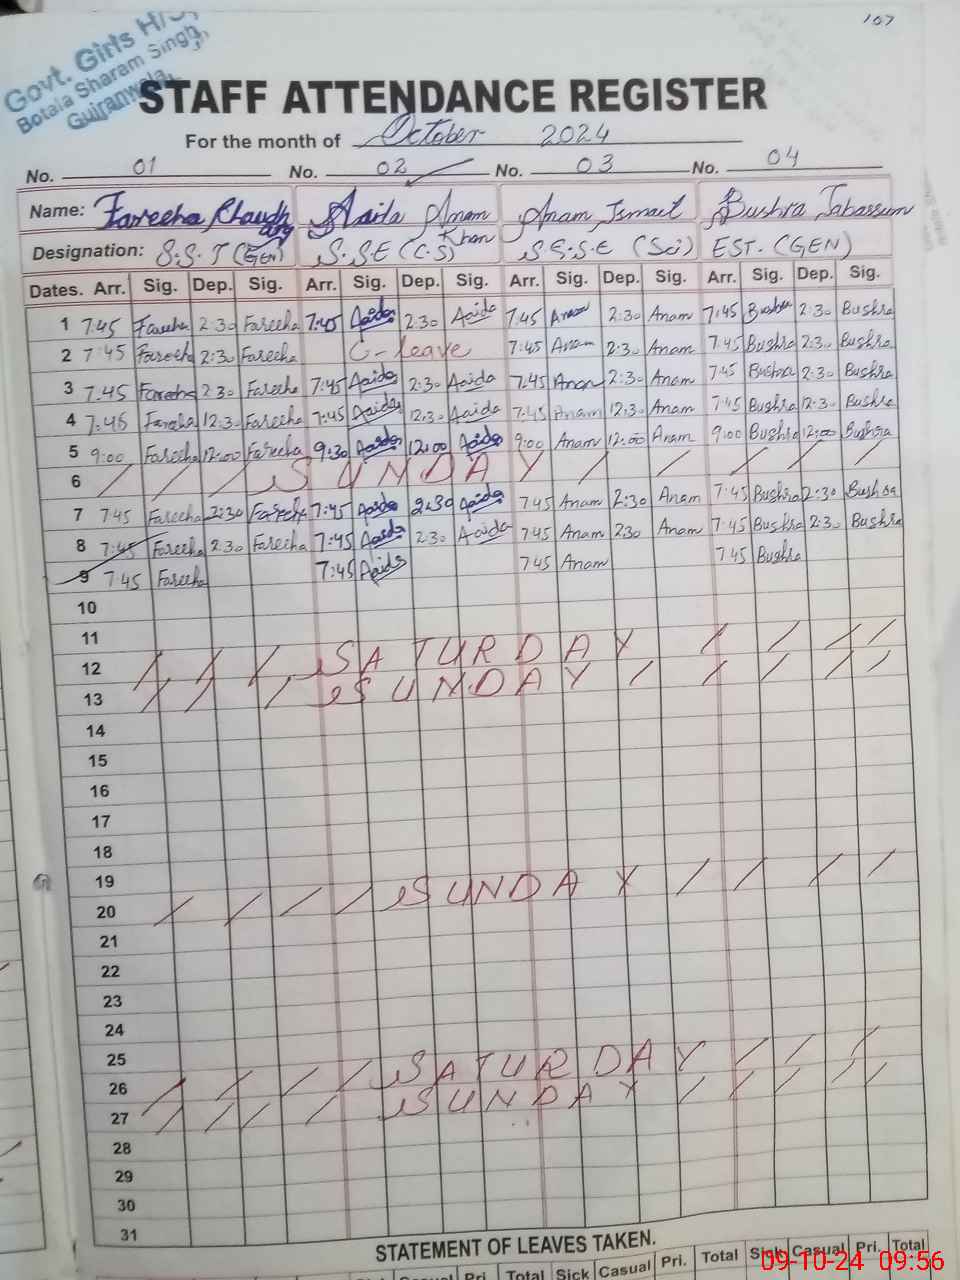 107
Govt. Girls H/S
Botala Sharam Singh
Gujranwala.
STAFF ATTENDANCE REGISTER
For the month of October 2024
No. 01 No. 02 No. 03 No. 04
Name: Fareeha Chaudhary Aaida Anam Khan Anam Ismail Bushra Tabassum
Designation: S.S.T (GEN) S.S.E (C.S) S.E.S.E (Sci) EST. (GEN)
Dates. Arr. Sig. Dep. Sig. Arr. Sig. Dep. Sig. Arr. Sig. Dep. Sig. Arr. Sig. Dep. Sig.
1 7:45 Fareeha 2:30 Fareeha 7:45 Aaida 2:30 Aaida 7:45 Anam 2:30 Anam 7:45 Bushra 2:30 Bushra
2 7:45 Fareeha 2:30 Fareeha C-leave 7:45 Anam 2:30 Anam 7:45 Bushra 2:30 Bushra
3 7:45 Fareeha 2:30 Fareeha 7:45 Aaida 2:30 Aaida 7:45 Anam 2:30 Anam 7:45 Bushra 2:30 Bushra
4 7:45 Fareeha 12:30 Fareeha 7:45 Aaida 12:30 Aaida 7:45 Anam 12:30 Anam 7:45 Bushra 12:30 Bushra
5 9:00 Fareeha 12:00 Fareeha 9:30 Aaida 12:00 Aaida 9:00 Anam 12:00 Anam 9:00 Bushra 12:00 Bushra
6 / / / SUNDAY / / / / /
7 7:45 Fareeha 2:30 Fareeha 7:45 Aaida 2:30 Aaida 7:45 Anam 2:30 Anam 7:45 Bushra 2:30 Bushra
8 7:45 Fareeha 2:30 Fareeha 7:45 Aaida 2:30 Aaida 7:45 Anam 2:30 Anam 7:45 Bushra 2:30 Bushra
9 7:45 Fareeha 7:45 Aaida 7:45 Anam 7:45 Bushra
10
11
12 / / / SATURDAY / / / /
13 / / / SUNDAY / / / / /
14
15
16
17
18
19
20 / / / / SUNDAY / / / / /
21
22
23
24
25
26 / / / / SATURDAY / / /
27 / / / / SUNDAY / / / / /
28
29
30
31
STATEMENT OF LEAVES TAKEN.
Sick Casual Pri. Total Sick Casual Pri. Total Sick Casual Pri. Total
09-10-24 09:56